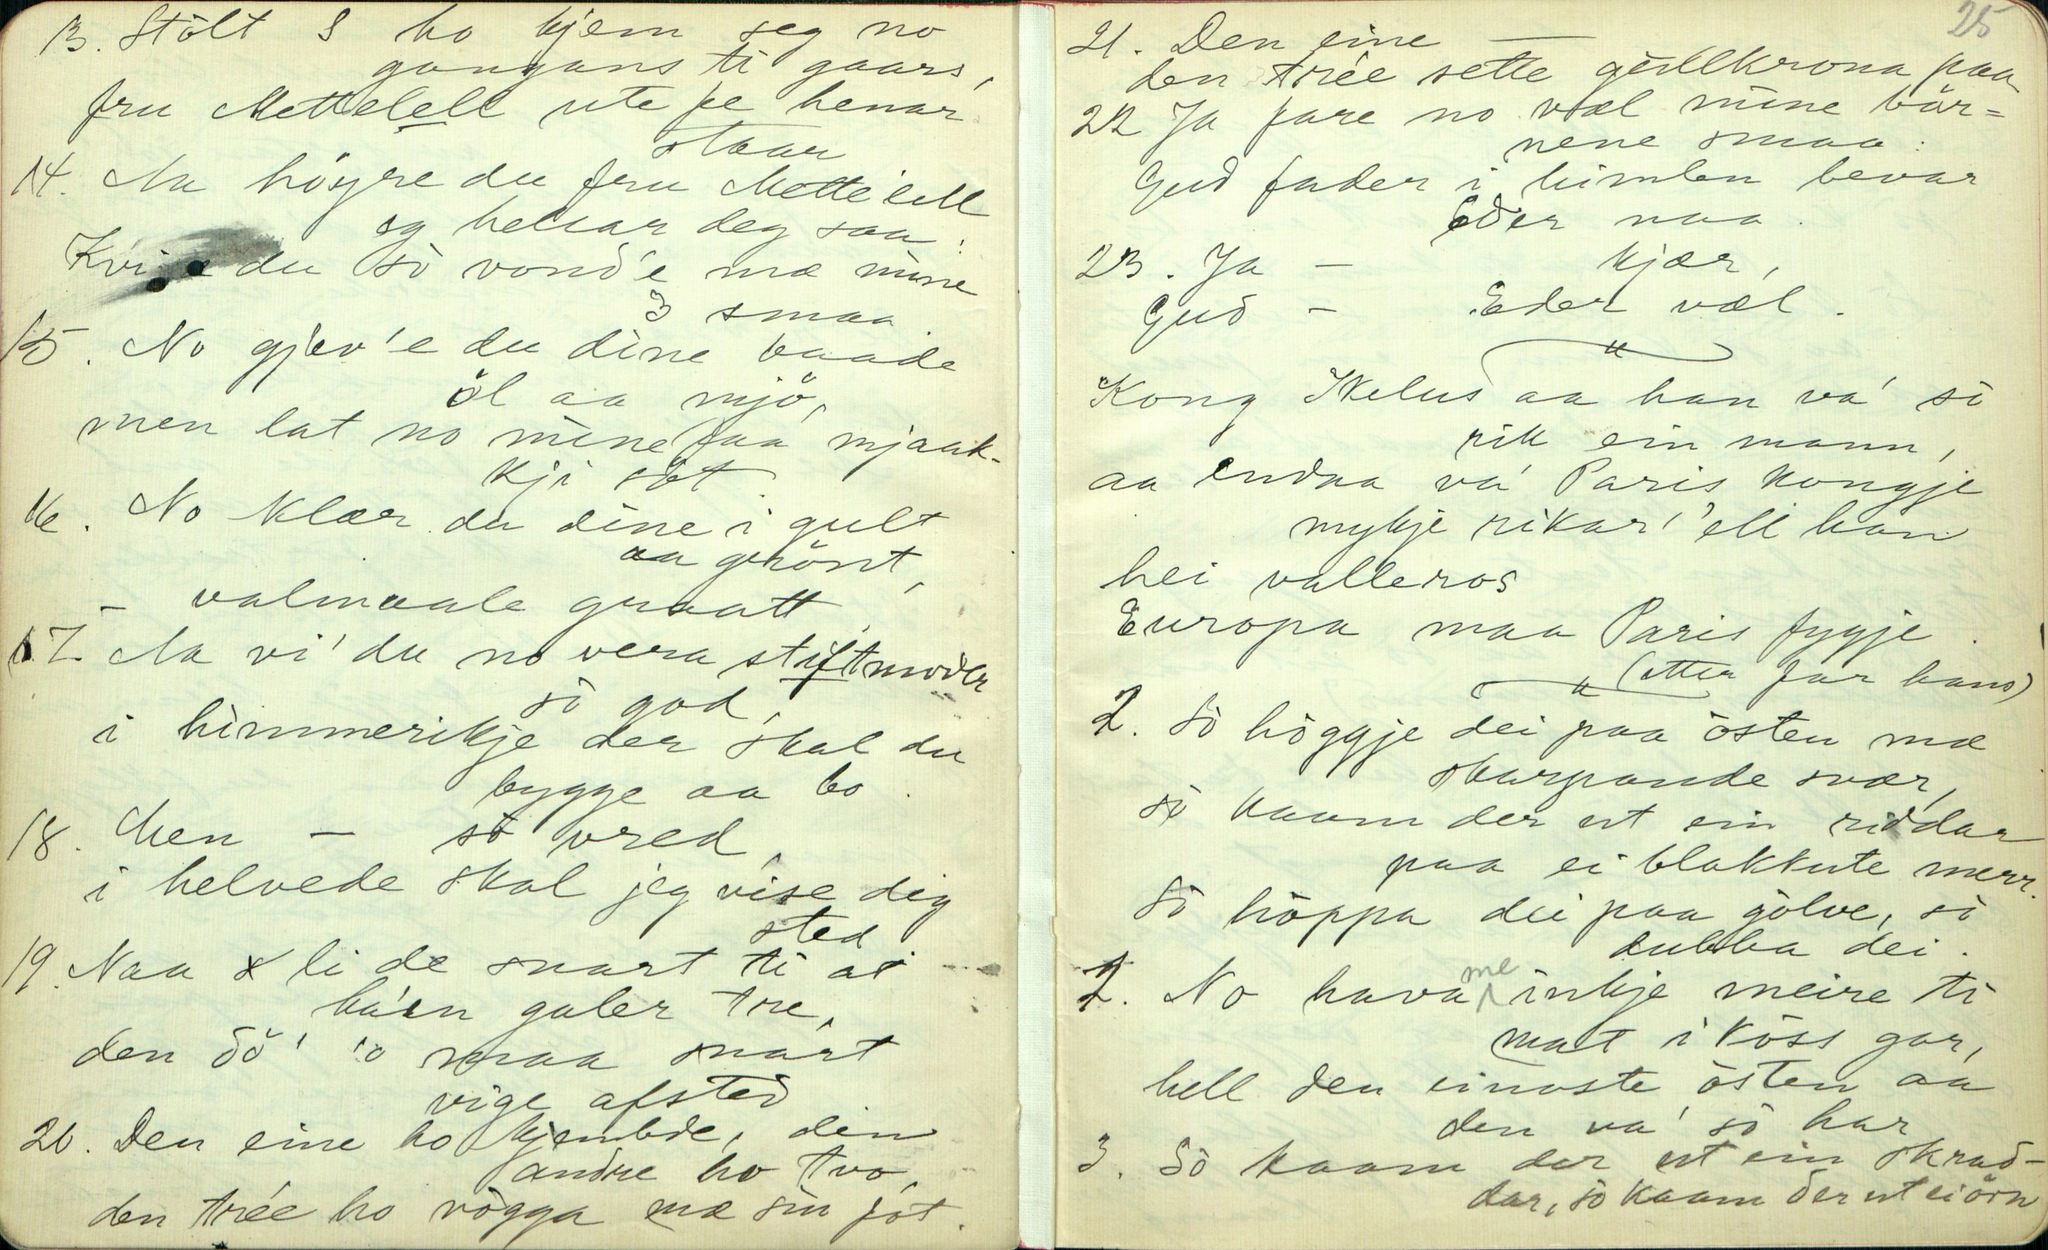 13. Stölt S ho kjem seg no
gangans ti gaars,
fru Mettelell ute fe henar
staar
14. Aa höyre du fru Mettelill
eg helsar deg saa:
Kvi e du so vond'e mæ mine
3 smaa.
15. No gjev'e du dine baade
öl aa mjö,
men lat no mine faa mjaak-
kji söt
16. No klær du dine i gult
aa grönt,
– valmaale graatt.
17. Aa vi' du no vera stiftmoder
so god,
i himmerikje der skal du
bygge aa bo.
18. Men – so vred,
i helvede skal jeg vise dig
sted.
19. Naa li de snart ti at
ha'en galer tre,
den dö' maa snart
vige afsted
20. Den eine ho kjembde, din
andre ho tvo,
den trée ho vogga mæ sin fot.
25
21. Den eine —
den trée sette gullkrona paa
22 Ja fare no væl mine bör=
nene smaa:
Gud fader i himlen bevar
Eder naa.
23. Ja – kjær,
Gud – Eder væl.
Kong Nelus aa han va' so
rik ein mann,
aa endaa va' Paris kongje
mykje rikar' 'ell han
hei valleros
Europa maa Paris fygje.
(etter far hans)
2. So höggje dei paa östen mæ
skarpande svær,
so kaam der ut ein riddar
paa ei blakkute merr.
So hoppa dei paa golve, so
dubba dei.
2. No hava me inkje meire ti
mat i koss gar,
hell den einaste östen aa
den va' so har
3. So kaam der ut ein skrad-
dar, so kaam der ut ei örn